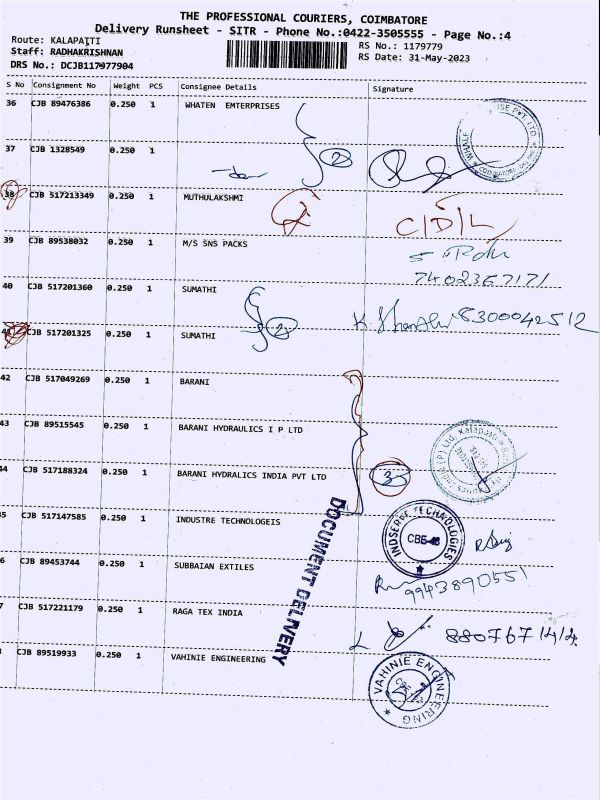 THE PROFESSIONAL COURIERS, COIMBATORE
Delivery Runsheet - SITR - Phone No.:0422-3505555 - Page No.:4
Route: KALAPATTI
Staff: RADHAKRISHNAN
DRS No.: DCJB117977904
RS No.: 1179779
RS Date: 31-May-2023
S No Consignment No Weight PCS Consignee Details Signature
36 CJB 89476386 0.250 1 WHATEN EMTERPRISES
37 CJB 1328549 0.250 1
2
38 CJB 517213349 0.250 1 MUTHULAKSHMI
C/D/L
39 CJB 89538032 0.250 1 M/S SNS PACKS
7402367171
40 CJB 517201360 0.250 1 SUMATHI
8300042512
41 CJB 517201325 0.250 1 SUMATHI
2
42 CJB 517049269 0.250 1 BARANI
43 CJB 89515545 0.250 1 BARANI HYDRAULICS I P LTD
44 CJB 517188324 0.250 1 BARANI HYDRALICS INDIA PVT LTD
3
5 CJB 517147585 0.250 1 INDUSTRE TECHNOLOGEIS
INDSERVE TECHNOLOGIES
6 CJB 89453744 0.250 1 SUBBAIAN EXTILES
9943890551
7 CJB 517221179 0.250 1 RAGA TEX INDIA
8807671414
CJB 89519933 0.250 1 VAHINIE ENGINEERING
VAHINIE ENGINEERING
DOCUMENT DELIVERY